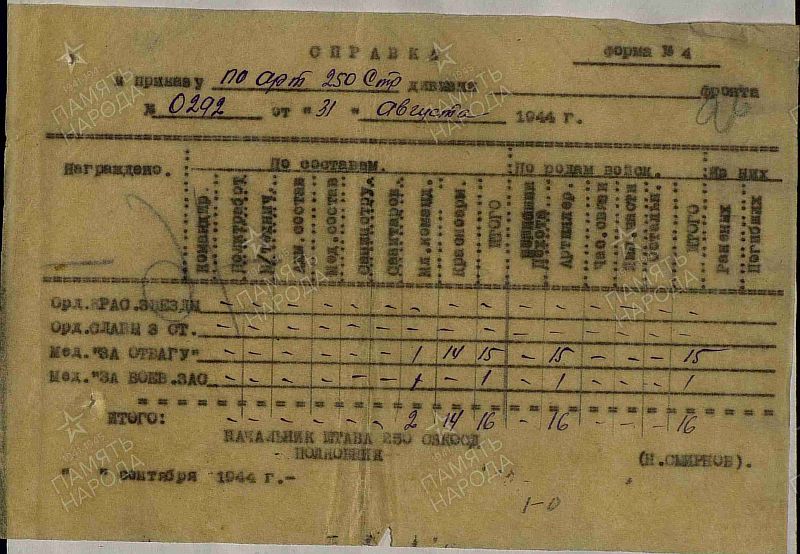 СПРАВКА форма № 4
к приказу по арт 250 Стр дивизии фронта
№ 0292 от "31" августа 1944 г.
Награждено. По составам. По родам войск. Из них
Командир. Политработ. Мед.состав Мл.команд. Красноарм. ИТОГО Пехота Артиллер. Час.связи Остальн. ИТОГО Раненых Погибших
Орд.КРАС.ЗВЕЗДЫ - - - - - - - - - - - - - - - -
Орд.СЛАВЫ 3 СТ. - - - - - - - - - - - - - - - -
Мед."ЗА ОТВАГУ" - - - - - - - 1 14 15 - 15 - - - 15
Мед."ЗА БОЕВ.ЗАС - - - - - - - 1 - 1 - 1 - - - 1
ИТОГО: - - - - - - - 2 14 16 - 16 - - - 16
НАЧАЛЬНИК ШТАБА 250
ПОЛКОВНИК (Н.СМИРНОВ).
" " сентября 1944 г.-
1-0
ПАМЯТЬ НАРОДА